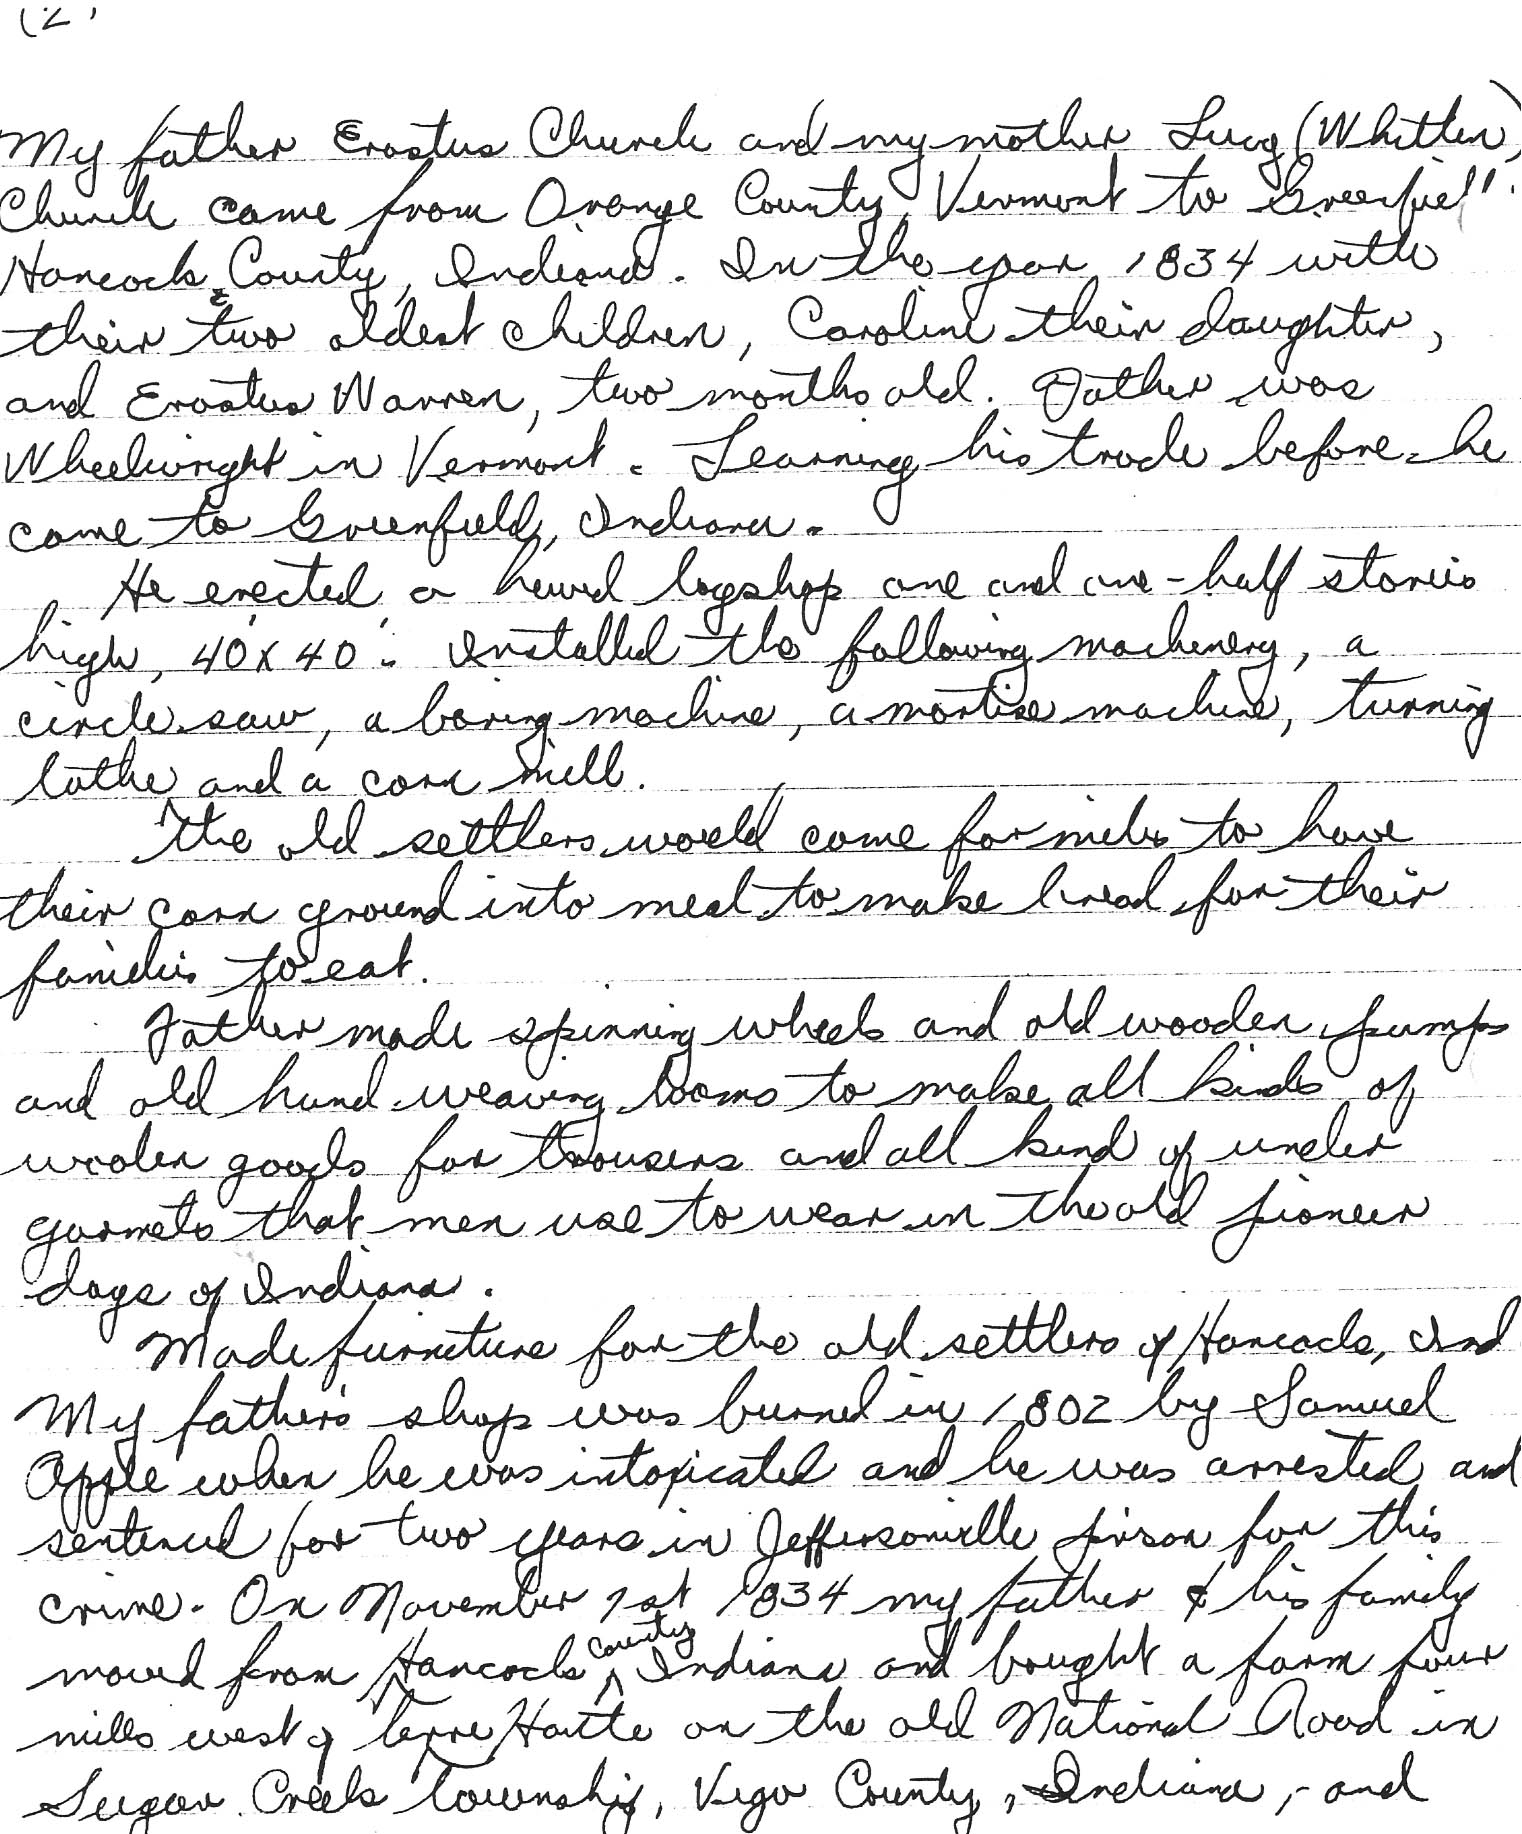 (2)
My father Erastus Church and my mother Lucy (Whitten)
Church came from Orange County, Vermont to Greenfield
Hancock County, Indiana. In the year 1834 with
their two oldest children, Caroline their daughter,
and Erastus Warren, two months old. Father was
Wheelwright in Vermont. Learning his trade before he
come to Greenfield, Indiana.
He erected a hewed logshop one and one-half stories
high, 40'x 40'. Installed the following machinery, a
circle saw, a boring machine, a mortise machine, turning
lathe and a corn mill.
The old settlers would come for miles to have
their corn ground into meal to make bread for their
families to eat.
Father made spinning wheels and old wooden pumps
and old hand weaving looms to make all kinds of
woolen goods for trousers and all kind of under
garmets that men use to wear in the old pioneer
days of Indiana.
Made furniture for the old settlers of Hancock, Ind
My father's shop was burned in 1802 by Samuel
Apple when he was intoxicated and he was arrested and
sentenced for two years in Jeffersonville prison for this
crime. On November 1st 1834 my father & his family
moved from Hancock ^county Indiana and bought a farm four
miles west of Terre Haute on the old National Road in
Sugar Creek Township, Vigo County, Indiana, - and